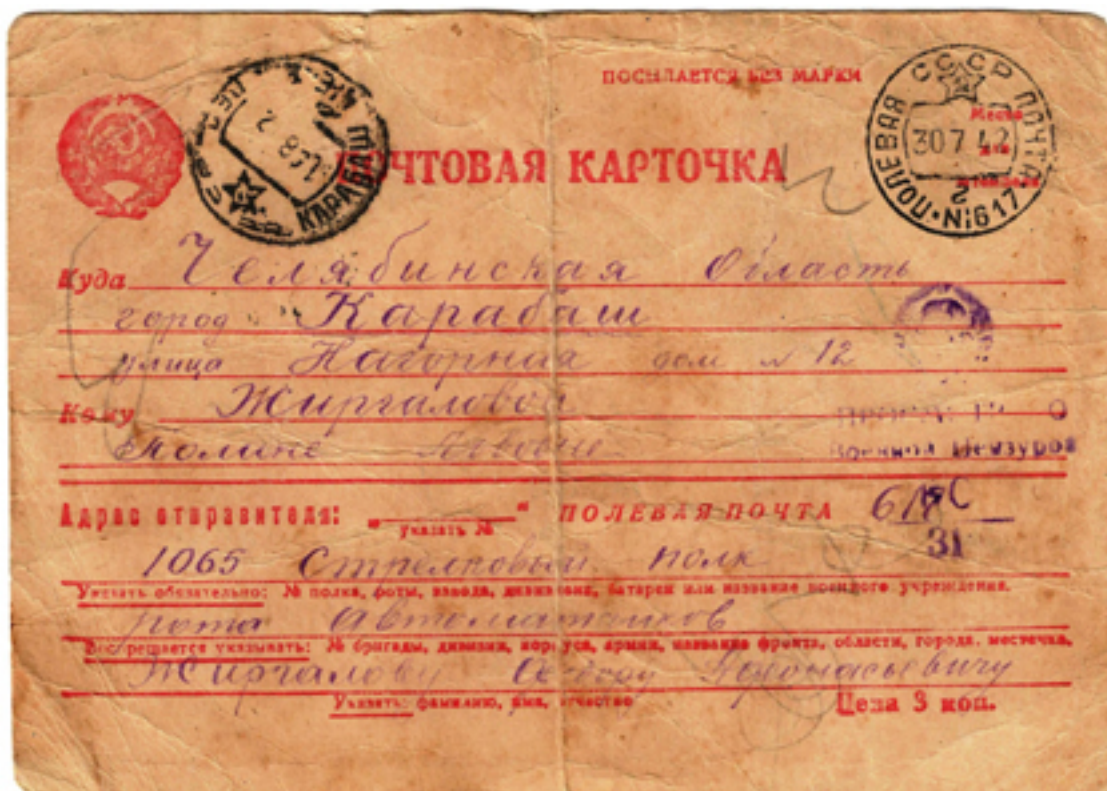 ПОСЫЛАЕТСЯ БЕЗ МАРКИ
ПОЧТОВАЯ КАРТОЧКА
КАРАБАШ
СССР
ПОЛЕВАЯ ПОЧТА
Место
для
штемпеля
30 7 42
г
№617
Куда Челябинская область
город Карабаш
улица Нагорная дом №12
Кому Жиргаловой
Полине
Военной Цензурой
Адрес отправителя: „ “ ПОЛЕВАЯ ПОЧТА 617 С
указать №
31
1065 Стрелковый полк
Указать обязательно: № полка, роты, взвода, дивизиона, батареи или название военного учреждения.
рота Автоматчиков
Воспрещается указывать: № бригады, дивизии, корпуса, армии, название фронта, области, города, местечка.
Жиргалову Афонасьевичу
Указать: фамилию, имя, отчество
Цена 3 коп.